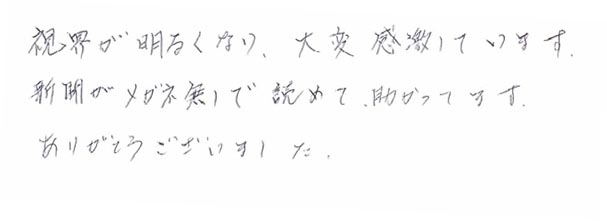 視界が明るくなり、大変感激しています.
新聞がメガネ無しで読めて、助かってます.
ありがとうございました.